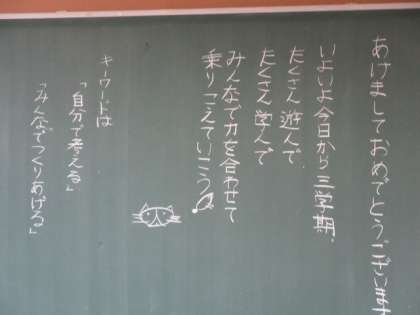 あけましておめでとうございます
いよいよ今日から三学期.
たくさん遊んで.
たくさん学んで
みんなで力を合わせて
乗りこえていこう
キーワードは
「自分で考える」
「みんなでつくりあげる」